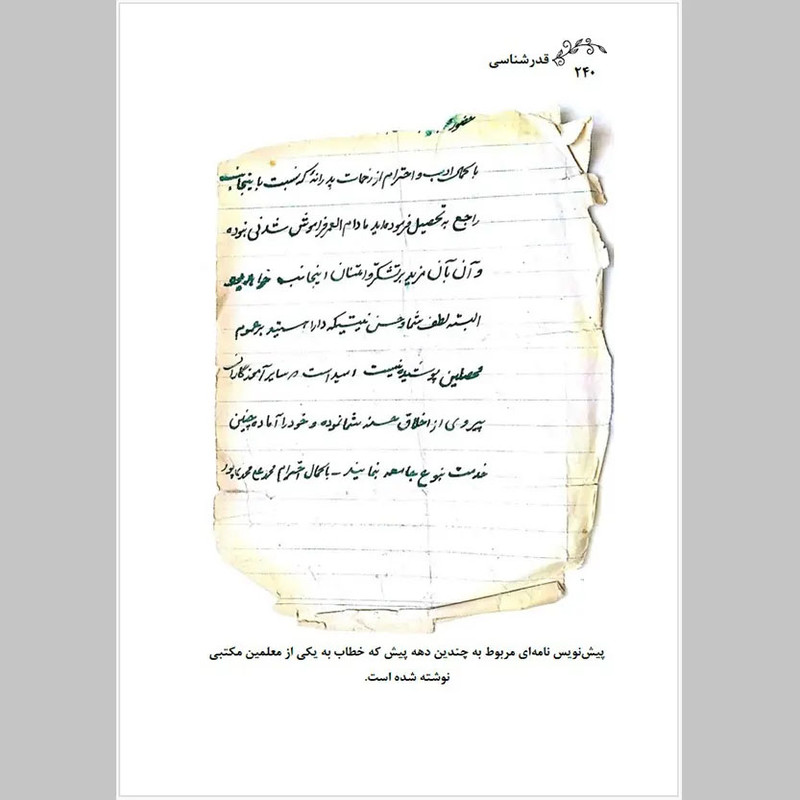 قدرشناسی
۲۴۰
حضور
با کمال ادب و احترام از زحمات پدرانه که نسبت باینجانب
راجع به تحصیل فرموده‌اید مادام العمر فراموش شدنی نبوده
و آن بآن مزید بر تشکر و امتنان اینجانب خواهد بود
البته لطف شما و حسن نیتیکه دارا هستید بر عموم
محصلین پوشیده نیست امید است سایر آموزگاران
پیروی از اخلاق حسنه شما نموده و خود را آماده چنین
خدمت بنوع جامعه نمایند - با کمال احترام محمد علی محمدپور
پیش‌نویس نامه‌ای مربوط به چندین دهه پیش که خطاب به یکی از معلمین مکتبی
نوشته شده است.